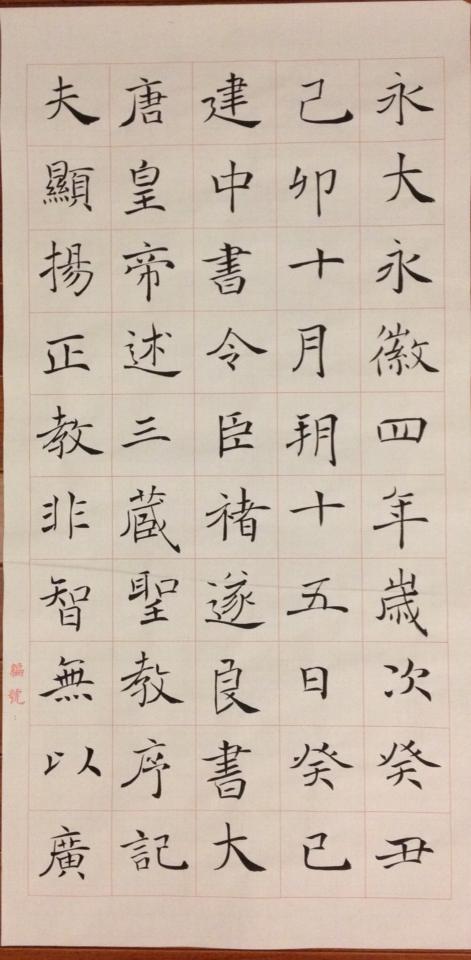 永大永徽四年歲次癸丑
己卯十月朔十五日癸巳
建中書令臣褚遂良書大
唐皇帝述三藏聖教序記
夫顯揚正教非智無以廣
編號：